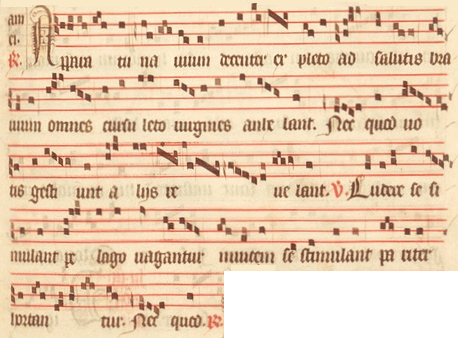 am
ci.
℟ tri na uium decenter ex pleto ad salutis bra
uium omnes cursu leto uirgines anhe lant. Nec quod uo
tis gesti unt a lijs re ue lant. V. Ludere se si
mulant pe lago uagantur inuicem se stimulant pa riter
hortan tur. Nec quod. ℟